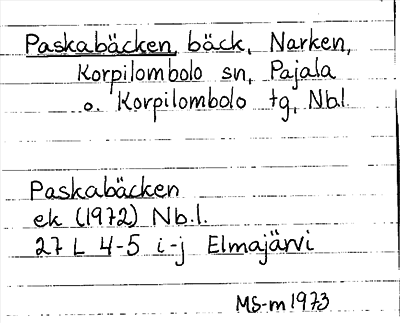 Paskabäcken, bäck, Narken,
Korpilombolo sn, Pajala
o. Korpilombolo tg, Nbl.
Paskabäcken
ek (1972) Nb.l.
27 L 4-5 i-j Elmajärvi
MS-m 1973